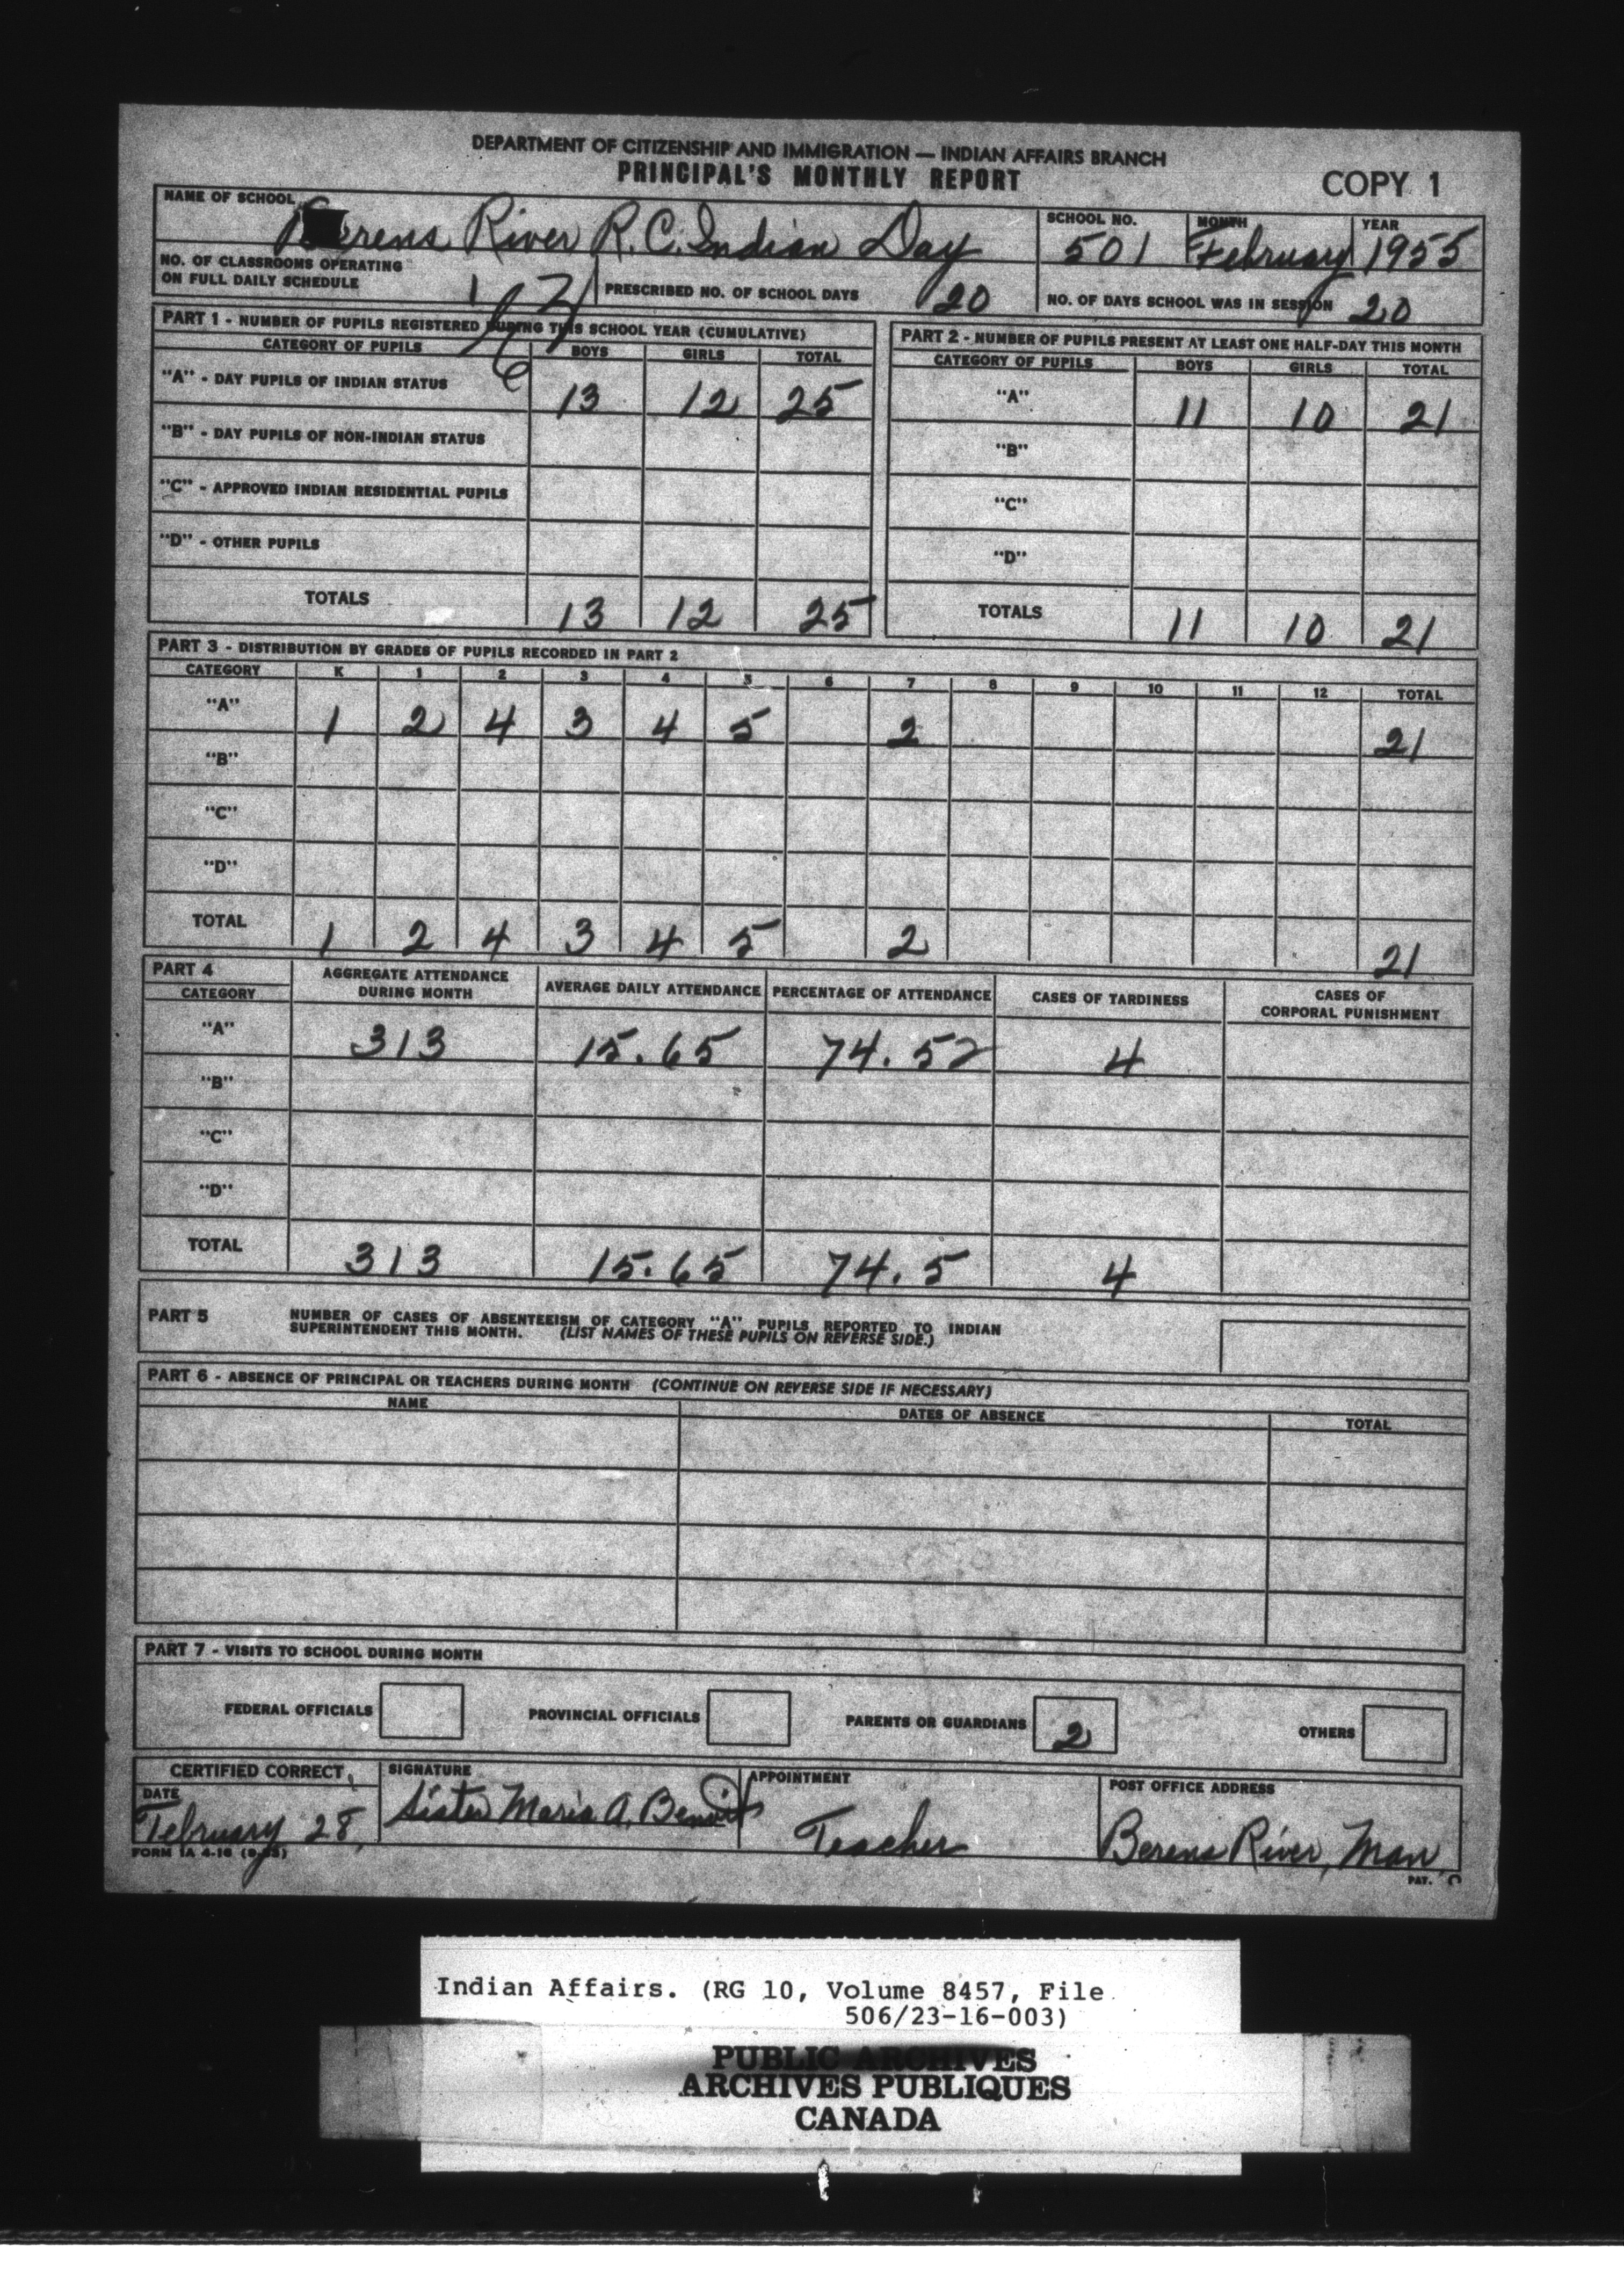 DEPARTMENT OF CITIZENSHIP AND IMMIGRATION — INDIAN AFFAIRS BRANCH
PRINCIPAL'S MONTHLY REPORT
COPY 1
NAME OF SCHOOL Berens River R.C. Indian Day SCHOOL NO. 501 MONTH February YEAR 1955
NO. OF CLASSROOMS OPERATING
ON FULL DAILY SCHEDULE 1 PRESCRIBED NO. OF SCHOOL DAYS 20 NO. OF DAYS SCHOOL WAS IN SESSION 20
PART 1 - NUMBER OF PUPILS REGISTERED DURING THIS SCHOOL YEAR (CUMULATIVE)
CATEGORY OF PUPILS BOYS GIRLS TOTAL
"A" - DAY PUPILS OF INDIAN STATUS 13 12 25
"B" - DAY PUPILS OF NON-INDIAN STATUS
"C" - APPROVED INDIAN RESIDENTIAL PUPILS
"D" - OTHER PUPILS
TOTALS 13 12 25
PART 2 - NUMBER OF PUPILS PRESENT AT LEAST ONE HALF-DAY THIS MONTH
CATEGORY OF PUPILS BOYS GIRLS TOTAL
"A" 11 10 21
"B"
"C"
"D"
TOTALS 11 10 21
PART 3 - DISTRIBUTION BY GRADES OF PUPILS RECORDED IN PART 2
CATEGORY K 1 2 3 4 5 6 7 8 9 10 11 12 TOTAL
"A" 1 2 4 3 4 5 2 21
"B"
"C"
"D"
TOTAL 1 2 4 3 4 5 2 21
PART 4
CATEGORY AGGREGATE ATTENDANCE DURING MONTH AVERAGE DAILY ATTENDANCE PERCENTAGE OF ATTENDANCE CASES OF TARDINESS CASES OF CORPORAL PUNISHMENT
"A" 313 15.65 74.52 4
"B"
"C"
"D"
TOTAL 313 15.65 74.5 4
PART 5 NUMBER OF CASES OF ABSENTEEISM OF CATEGORY "A" PUPILS REPORTED TO INDIAN
SUPERINTENDENT THIS MONTH. (LIST NAMES OF THESE PUPILS ON REVERSE SIDE.)
PART 6 - ABSENCE OF PRINCIPAL OR TEACHERS DURING MONTH (CONTINUE ON REVERSE SIDE IF NECESSARY)
NAME DATES OF ABSENCE TOTAL
PART 7 - VISITS TO SCHOOL DURING MONTH
FEDERAL OFFICIALS PROVINCIAL OFFICIALS PARENTS OR GUARDIANS 2 OTHERS
CERTIFIED CORRECT SIGNATURE APPOINTMENT POST OFFICE ADDRESS
DATE
February 28, Sister Maria A. Benoit Teacher Berens River, Man.
FORM 1A 4-16
PAT. C
Indian Affairs. (RG 10, Volume 8457, File
506/23-16-003)
PUBLIC ARCHIVES
ARCHIVES PUBLIQUES
CANADA